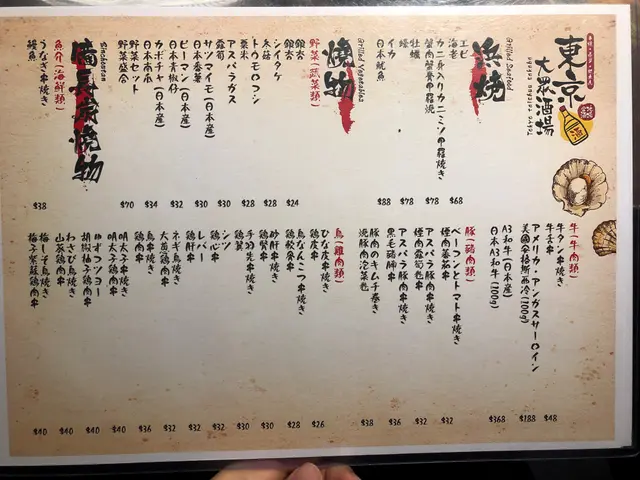 東京
大衆酒場
Grilled Seafood
浜焼
エビ
海老 $68
カニ身入りカニミソ甲羅焼き
蟹肉蟹膏甲羅燒 $78
牡蠣
蠔 $78
イカ
日本魷魚 $88
Grilled Vegetables
燒物
野菜(蔬菜類)
銀杏
銀杏 $24
シイタケ
冬菇 $28
トウモロコシ
粟米 $28
アスパラガス
露筍 $30
サツマイモ(日本産)
日本番薯 $30
ピーマン(日本産)
日本青椒仔 $32
カボチャ(日本産)
日本南瓜 $34
野菜セット
野菜盛合 $70
Binchoutan
備長炭燒物
魚介(海鮮類)
うなぎ串焼き
鰻魚 $38
牛(牛肉類)
牛タン串焼き
牛舌串 $48
アメリカ・アンガスサーロイン
美國安格斯西冷(200g) $188
A3和牛(日本産)
日本A3和牛(100g) $368
豚(豬肉類)
ベーコンとトマト串焼き
煙肉蕃茄串 $32
アスパラ豚肉串焼き
煙肉露筍卷串 $32
アスパラ豚肉串焼き
黒毛豬腩串 $36
豚肉のキムチ巻き
燒豚肉泡菜卷 $38
鳥(雞肉類)
ひな皮串焼き
鶏皮串 $26
鳥なんこつ串焼き
鶏軟骨串 $28
砂肝串焼き
鶏腎串 $30
手羽先串焼き
鶏翼串 $30
シツ
鶏心串 $32
レバー
鶏肝串 $32
ネギ鳥焼き
大蔥鶏肉串 $32
鳥串焼き
鶏肉串 $36
明太子串焼き
明太子鶏肉串 $40
ゆずコツヨー
胡椒柚子鶏肉串 $40
わさび鳥焼き
山葵鶏肉串 $40
梅しそ鳥焼き
梅子紫蘇鶏肉串 $40